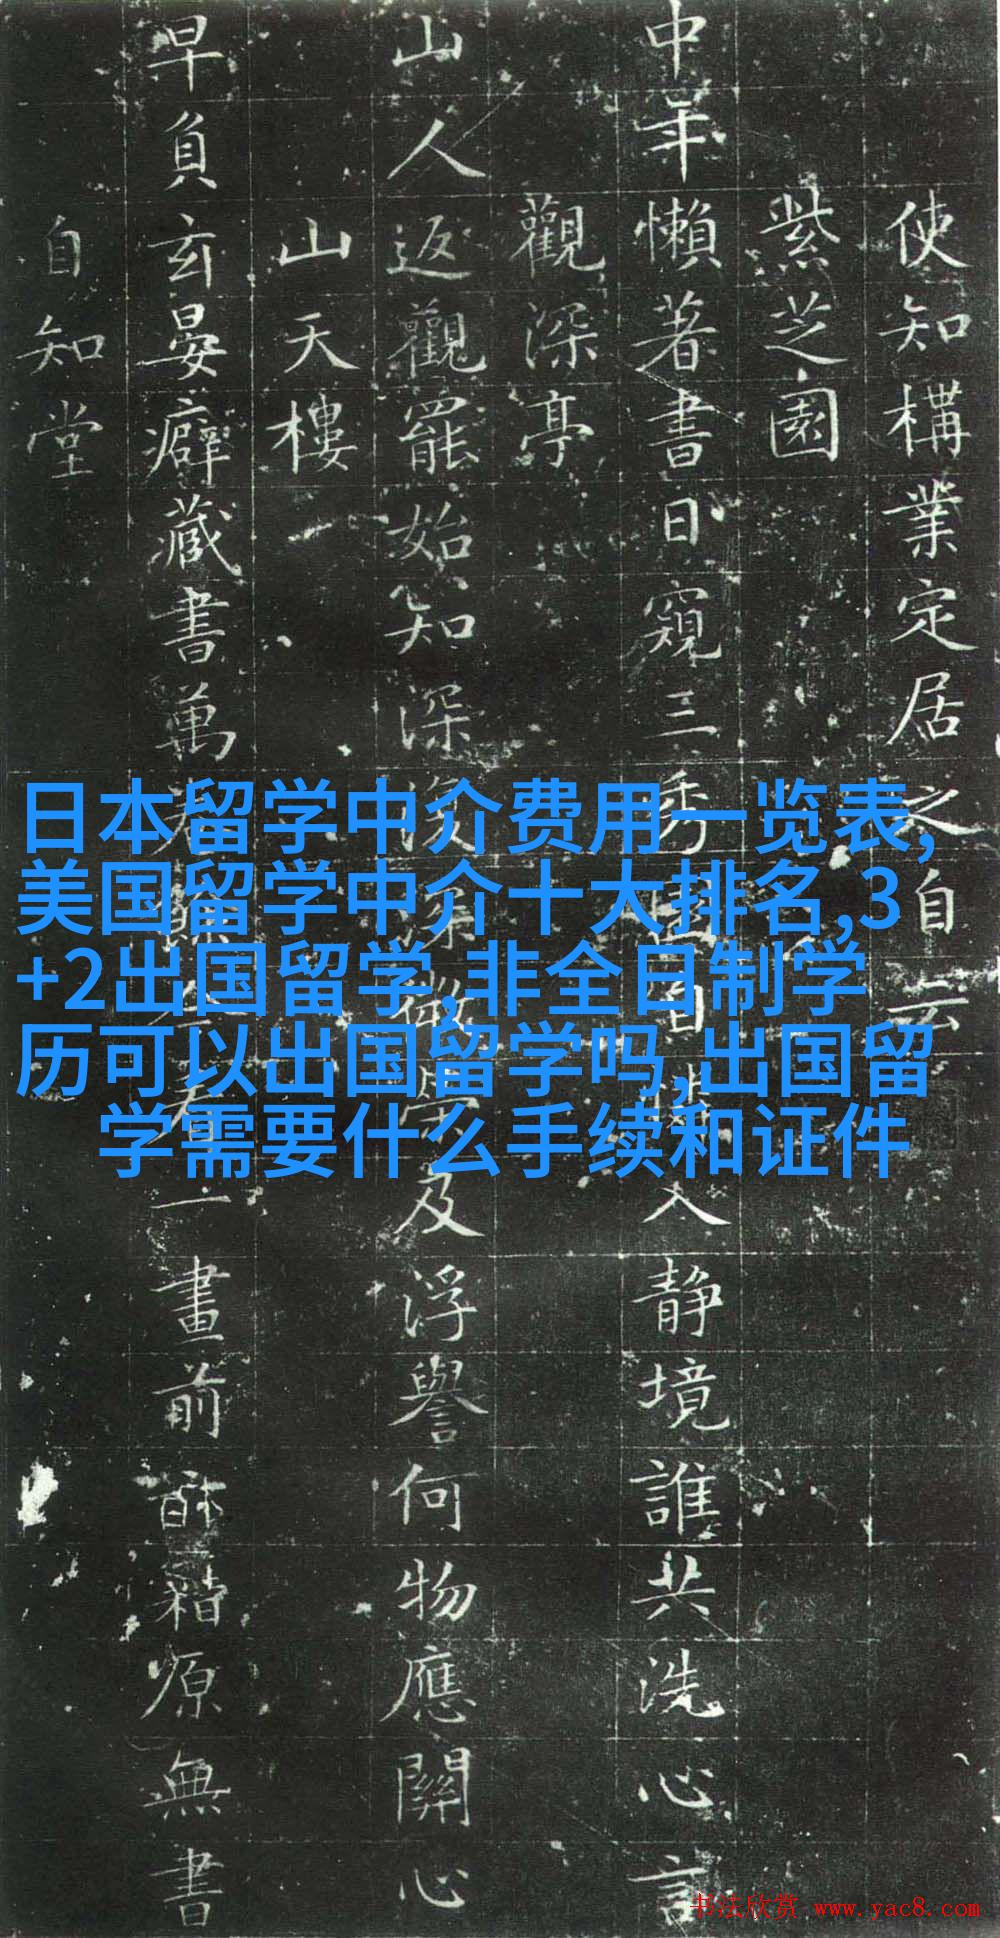 使知構業定居之自云
紫芝園
中年懶著書日窺三秀自入静境誰共洗心言
觀深亭
山人返觀罷始知深深及浮譽何物應關心
山天樓
早負玄晏癖藏書萬一畫前籍原無書
自知堂
日本留学中介费用一览表,
美国留学中介十大排名,3
+2出国留学,非全日制学
历可以出国留学吗,出国留
学需要什么手续和证件
书法欣赏 www.yac8.com